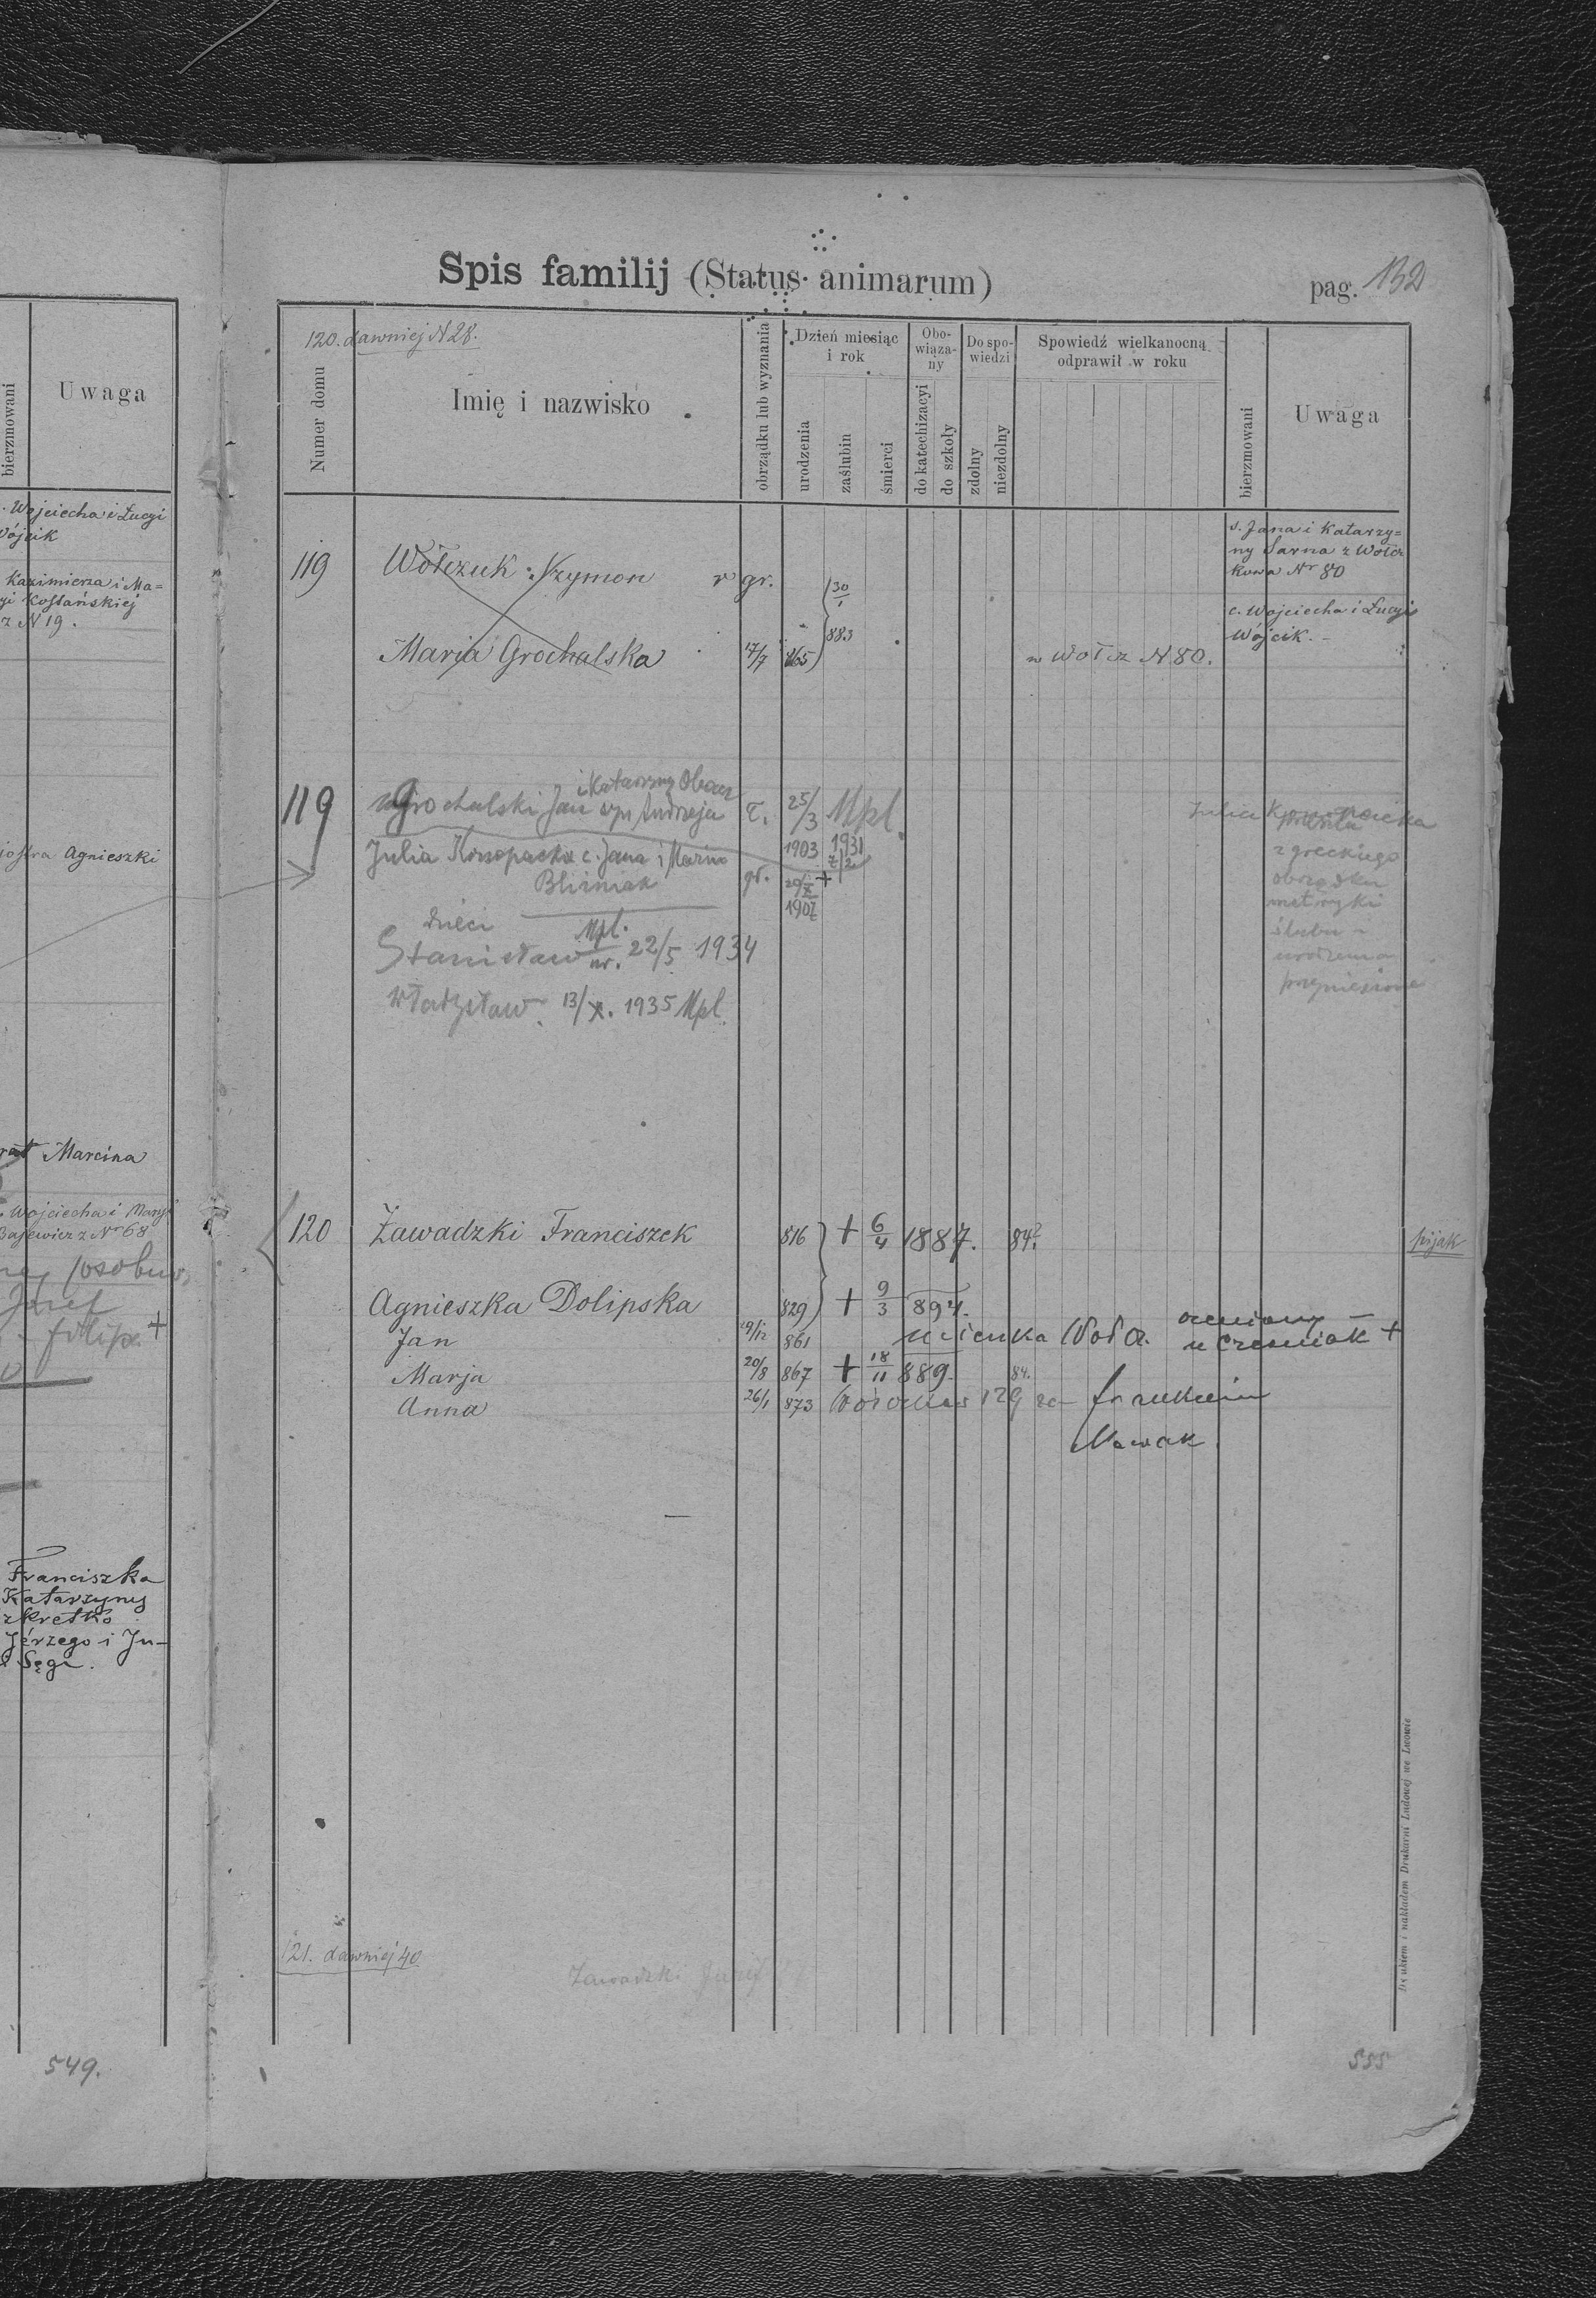 Uwaga
bierzmowani
Wojciecha i Łucyi
Wójcik
Kazimierza i Ma=
Kossańskiej
z N 19.
Agnieszki
Marcina
Wojciecha i Maryi
z Nr 68
Józef
Franciszka
Katarzyny
Jerzego i Ju-
549.
Spis familij (Status animarum)
pag. 132
120. dawniej N 28.
Numer domu
Imię i nazwisko
obrządku lub wyznania
Dzień miesiąc i rok
urodzenia
zaślubin
śmierci
Obowiązany
do katechizacyi
do szkoły
Do spowiedzi
zdolny
niezdolny
Spowiedź wielkanocną odprawił w roku
bierzmowani
Uwaga
119 Wołczuk Szymon gr. 30/1 883 s. Jana i Katarzy=
ny Sarna z Wołcz
kowa Nr 80
Marja Grochalska 17/7 865 w Wołcz N 80. c. Wojciecha i Łucyi
Wójcik.
i Katarzyny
119 Grochalski Jan syn Andrzeja 25/3 1903 Mpl. 1931
Julia Konopacka c. Jana i Marii gr. 20/X 1907
Bliźniak
Julia Konopacka
z greckiego
obrządku
metryki
ślubu i
urodzenia
przyniesione
Dzieci
Stanisław ur. 22/5 1934 Mpl.
Władysław 13/X. 1935 Mpl.
120 Zawadzki Franciszek 816 + 6/4 1887. 84. pijak
Agnieszka Dolipska 829 + 9/3 894.
Jan 29/12 861
Marja 20/8 867 + 18/11 889. 84.
Anna 26/1 873 129 za
Nowak
121. dawniej 40
Zawadzki Józef
555
Drukiem i nakładem Drukarni Ludowej we Lwowie